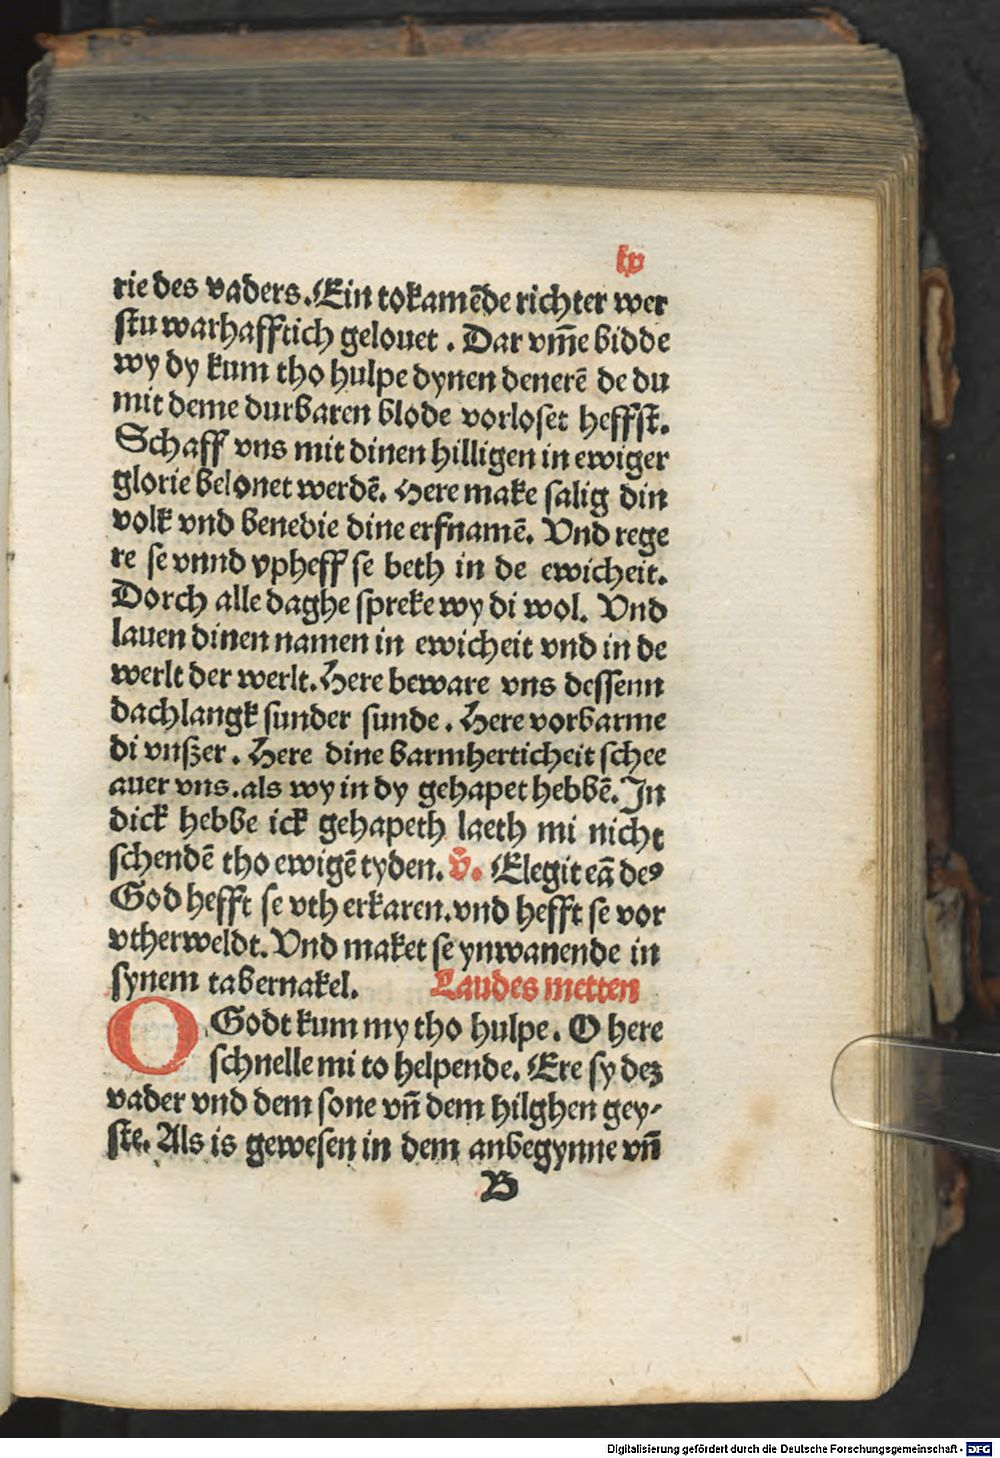 rie des vaders. Ein tokamēde richter wer
stu warhafftich gelouet. Dar vm̄e bidde
wy dy kum tho hulpe dynen denerē de du
mit deme durbaren blode vorloset heffst.
Schaff vns mit dinen hilligen in ewiger
glorie belonet werdē. Here make salig din
volk vnd benedie dine erfnamē. Vnd rege
re se vnnd vpheff se beth in de ewicheit.
Dorch alle daghe spreke wy di wol. Vnd
lauen dinen namen in ewicheit vnd in de
werlt der werlt. Here beware vns dessenn
dachlangk sunder sunde. Here vorbarme
di vnszer. Here dine barmherticheit schee
auer vns. als wy in dy gehapet hebbē. In
dick hebbe ick gehapeth laeth mi nicht
schendē tho ewigē tyden. v̄. Elegit eā deꝰ
God hefft se vth erkaren. vnd hefft se vor
vtherweldt. Vnd maket se ynwanende in
synem tabernakel. Laudes metten
O Godt kum my tho hulpe. O here
schnelle mi to helpende. Ere sy dez
vader vnd dem sone vn̄ dem hilghen gey-
ste. Als is gewesen in dem anbegynne vn̄
B
Digitalisierung gefördert durch die Deutsche Forschungsgemeinschaft - DFG